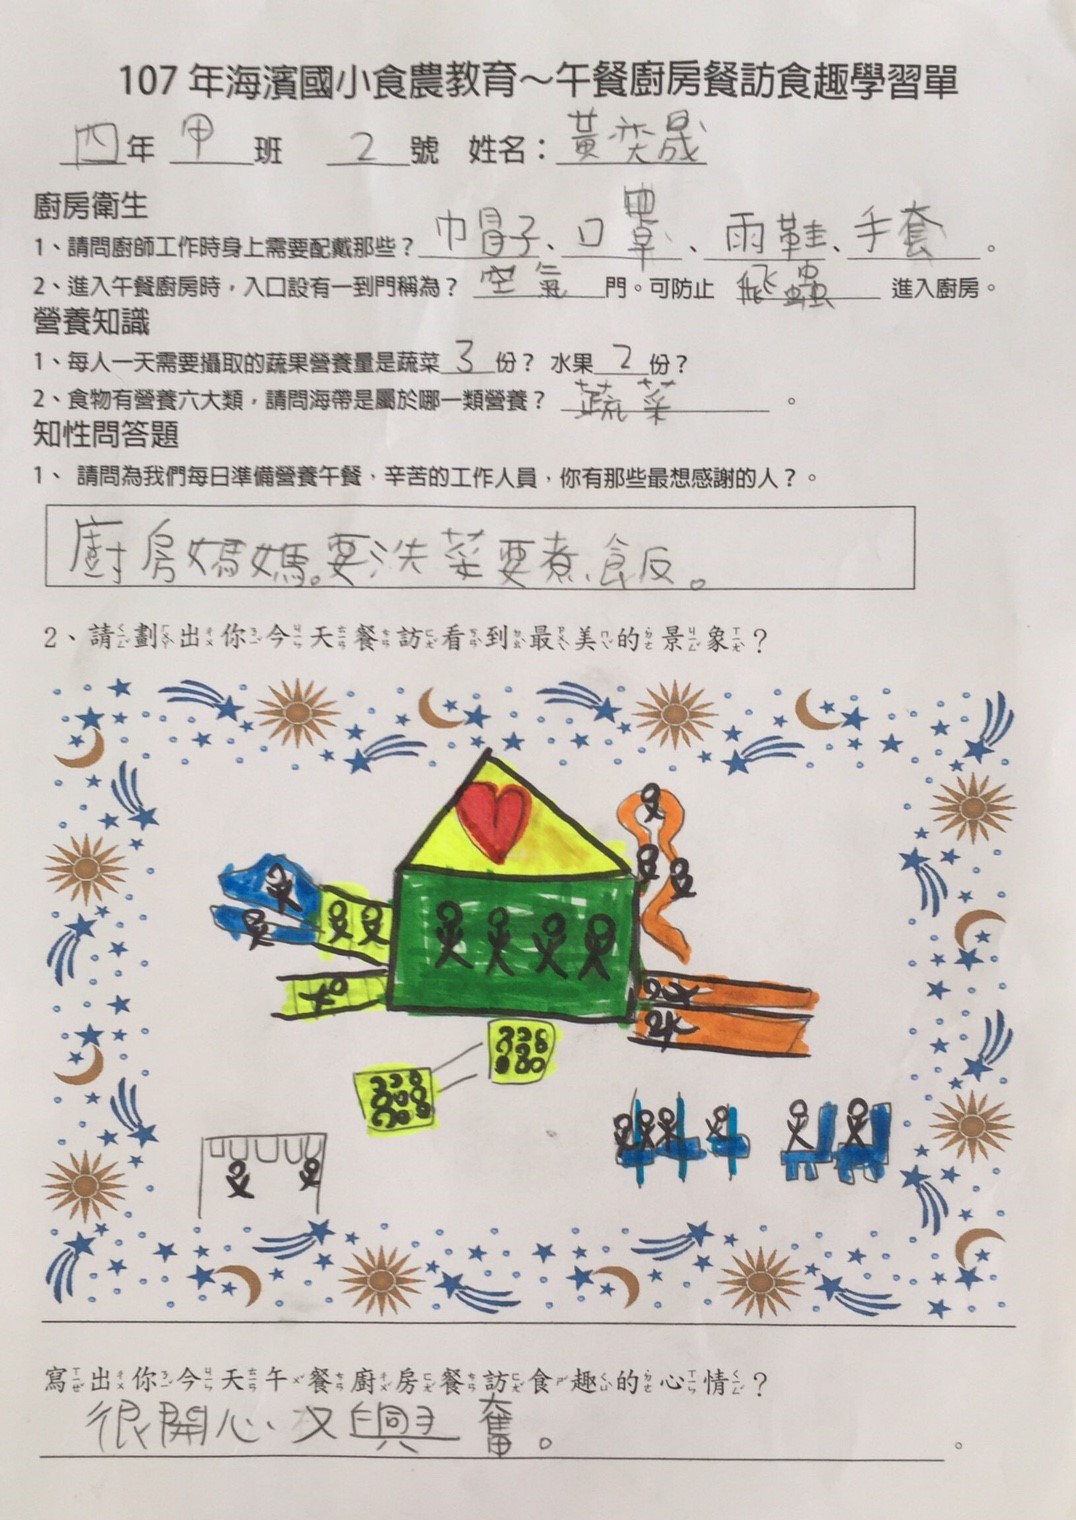 107年海濱國小食農教育～午餐廚房餐訪食趣學習單
四年 甲班 2號 姓名：黃奕晟
廚房衛生
1、請問廚師工作時身上需要配戴那些？帽子、口罩、雨鞋、手套。
2、進入午餐廚房時，入口設有一到門稱為？空氣門。可防止 飛蟲 進入廚房。
營養知識
1、每人一天需要攝取的蔬果營養量是蔬菜3份？ 水果2份？
2、食物有營養六大類，請問海帶是屬於哪一類營養？蔬菜。
知性問答題
1、 請問為我們每日準備營養午餐，辛苦的工作人員，你有那些最想感謝的人？。
廚房媽媽。要洗菜要煮飯。
2、請劃出你今天餐訪看到最美的景象？
寫出你今天午餐廚房餐訪食趣的心情？
很開心又興奮。
。